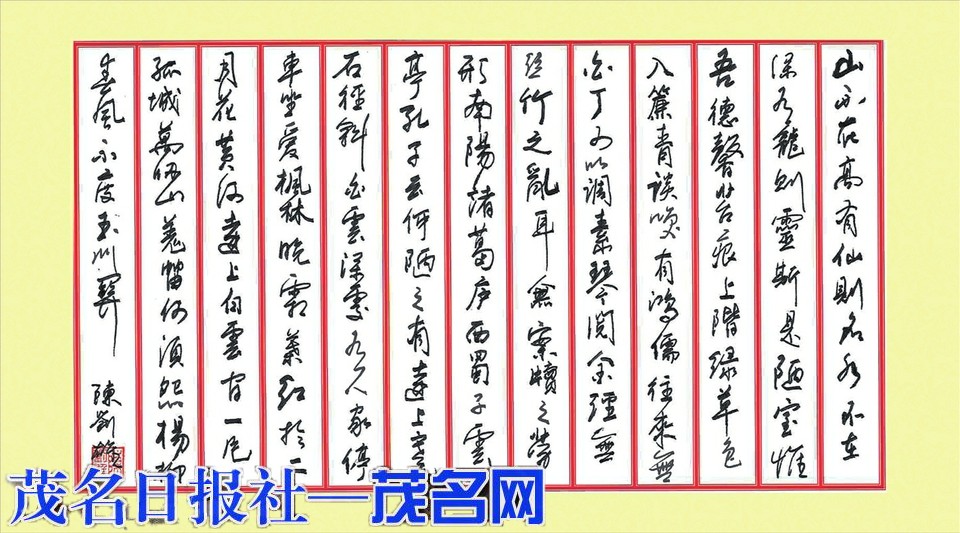 山不在高有仙則名水不在
深有龍則靈斯是陋室惟
吾德馨苔痕上階綠草色
入簾青談笑有鴻儒往來無
白丁可以調素琴閱金經無
絲竹之亂耳無案牘之勞
形南陽諸葛庐西蜀子雲
亭孔子云何陋之有遠上寒
石徑斜白雲深處有人家停
車坐愛楓林晚霜葉红於二
月花黄河遠上白雲間一片
孤城萬仞山羌笛何須怨楊柳
春風不度玉門關
陳
茂名日报社—茂名网